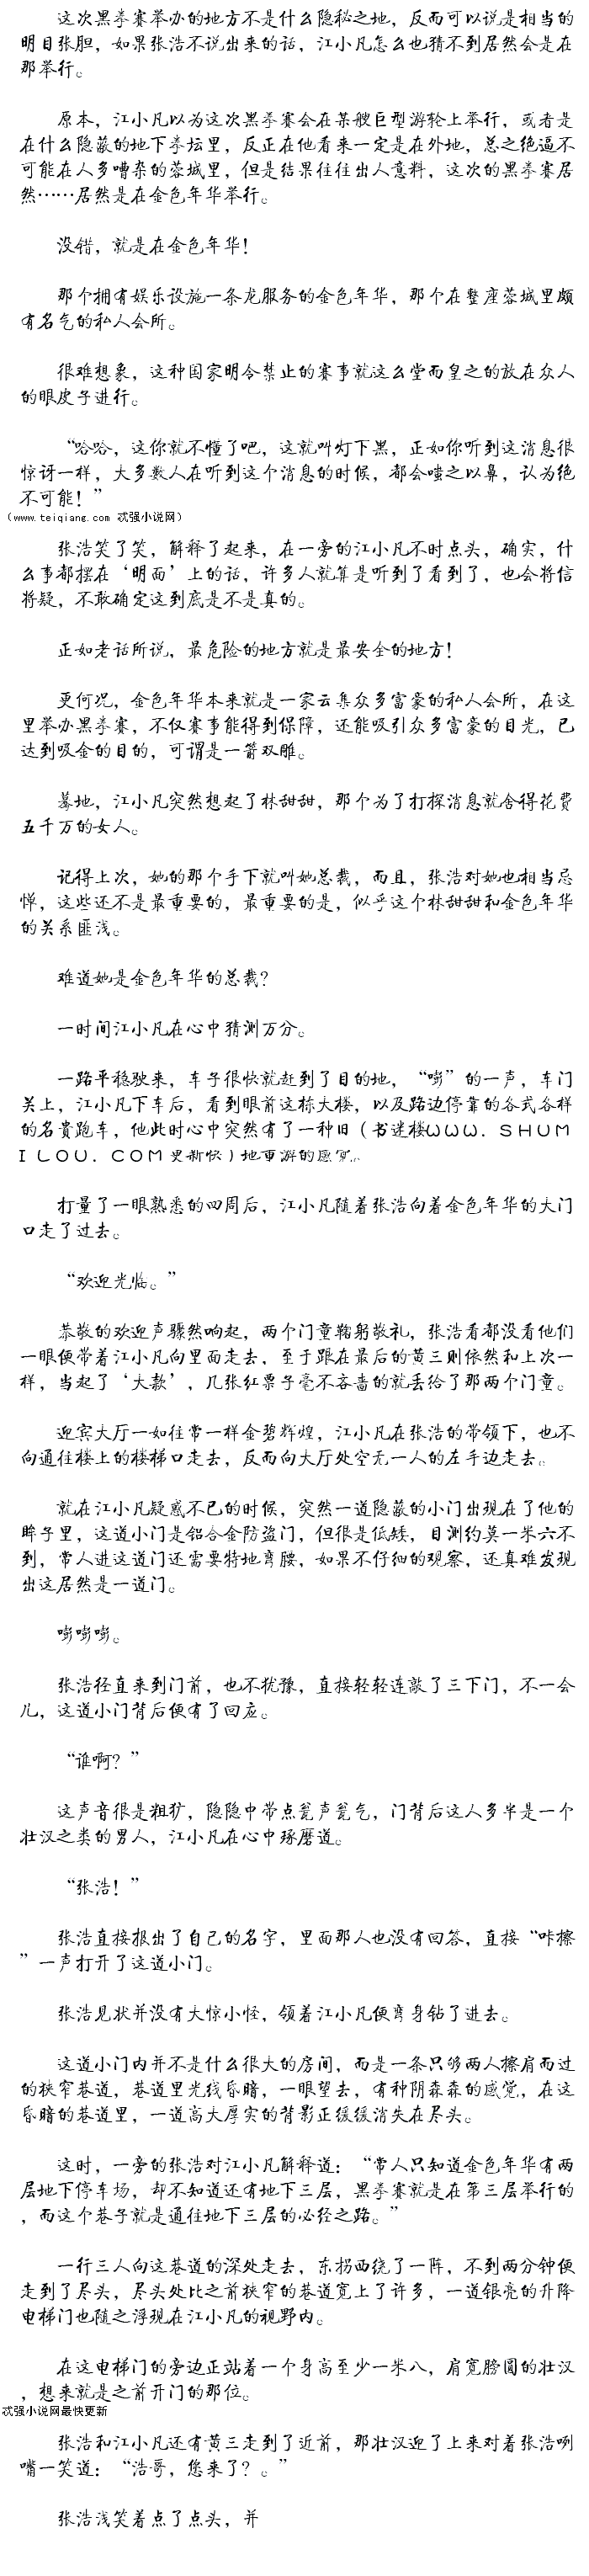 这次黑拳赛举办的地方不是什么隐秘之地，反而可以说是相当的
明目张胆，如果张浩不说出来的话，江小凡怎么也猜不到居然会是在
那举行。
原本，江小凡以为这次黑拳赛会在某艘巨型游轮上举行，或者是
在什么隐蔽的地下拳坛里，反正在他看来一定是在外地，总之绝逼不
可能在人多嘈杂的蓉城里，但是结果往往出人意料，这次的黑拳赛居
然……居然是在金色年华举行。
没错，就是在金色年华！
那个拥有娱乐设施一条龙服务的金色年华，那个在整座蓉城里颇
有名气的私人会所。
很难想象，这种国家明令禁止的赛事就这么堂而皇之的放在众人
的眼皮子进行。
“哈哈，这你就不懂了吧，这就叫灯下黑，正如你听到这消息很
惊讶一样，大多数人在听到这个消息的时候，都会嗤之以鼻，认为绝
不可能！”
（www.teiqiang.com 忒强小说网）
张浩笑了笑，解释了起来，在一旁的江小凡不时点头，确实，什
么事都摆在‘明面’上的话，许多人就算是听到了看到了，也会将信
将疑，不敢确定这到底是不是真的。
正如老话所说，最危险的地方就是最安全的地方！
更何况，金色年华本来就是一家云集众多富豪的私人会所，在这
里举办黑拳赛，不仅赛事能得到保障，还能吸引众多富豪的目光，已
达到吸金的目的，可谓是一箭双雕。
蓦地，江小凡突然想起了林甜甜，那个为了打探消息就舍得花费
五千万的女人。
记得上次，她的那个手下就叫她总裁，而且，张浩对她也相当忌
惮，这些还不是最重要的，最重要的是，似乎这个林甜甜和金色年华
的关系匪浅。
难道她是金色年华的总裁？
一时间江小凡在心中猜测万分。
一路平稳驶来，车子很快就赶到了目的地，“嘭”的一声，车门
关上，江小凡下车后，看到眼前这栋大楼，以及路边停靠的各式各样
的名贵跑车，他此时心中突然有了一种旧（书迷楼ＷＷＷ．ＳＨＵＭ
ＩＬＯＵ．ＣＯＭ更新快）地重游的感觉。
打量了一眼熟悉的四周后，江小凡随着张浩向着金色年华的大门
口走了过去。
“欢迎光临。”
恭敬的欢迎声骤然响起，两个门童鞠躬敬礼，张浩看都没看他们
一眼便带着江小凡向里面走去，至于跟在最后的黄三则依然和上次一
样，当起了‘大款’，几张红票子毫不吝啬的就丢给了那两个门童。
迎宾大厅一如往常一样金碧辉煌，江小凡在张浩的带领下，也不
向通往楼上的楼梯口走去，反而向大厅处空无一人的左手边走去。
就在江小凡疑惑不已的时候，突然一道隐蔽的小门出现在了他的
眸子里，这道小门是铝合金防盗门，但很是低矮，目测约莫一米六不
到，常人进这道门还需要特地弯腰，如果不仔细的观察，还真难发现
出这居然是一道门。
嘭嘭嘭。
张浩径直来到门前，也不犹豫，直接轻轻连敲了三下门，不一会
儿，这道小门背后便有了回应。
“谁啊？”
这声音很是粗犷，隐隐中带点瓮声瓮气，门背后这人多半是一个
壮汉之类的男人，江小凡在心中琢磨道。
“张浩！”
张浩直接报出了自己的名字，里面那人也没有回答，直接“咔擦
”一声打开了这道小门。
张浩见状并没有大惊小怪，领着江小凡便弯身钻了进去。
这道小门内并不是什么很大的房间，而是一条只够两人擦肩而过
的狭窄巷道，巷道里光线昏暗，一眼望去，有种阴森森的感觉，在这
昏暗的巷道里，一道高大厚实的背影正缓缓消失在尽头。
这时，一旁的张浩对江小凡解释道：“常人只知道金色年华有两
层地下停车场，却不知道还有地下三层，黑拳赛就是在第三层举行的
，而这个巷子就是通往地下三层的必经之路。”
一行三人向这巷道的深处走去，东拐西绕了一阵，不到两分钟便
走到了尽头，尽头处比之前狭窄的巷道宽上了许多，一道银亮的升降
电梯门也随之浮现在江小凡的视野内。
在这电梯门的旁边正站着一个身高至少一米八，肩宽膀圆的壮汉
，想来就是之前开门的那位。
忒强小说网最快更新
张浩和江小凡还有黄三走到了近前，那壮汉迎了上来对着张浩咧
嘴一笑道：“浩哥，您来了？。”
张浩浅笑着点了点头，并